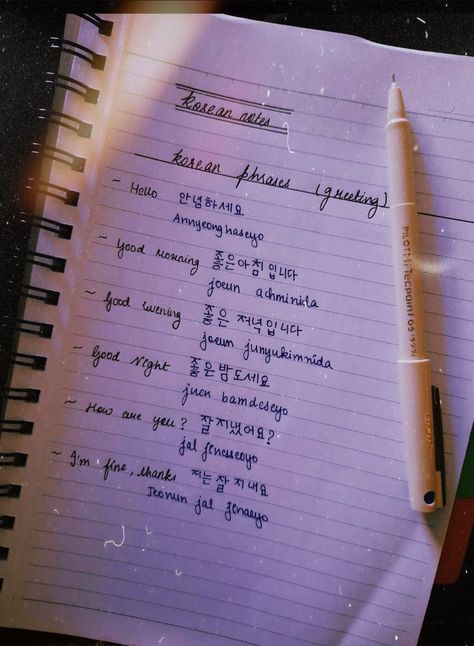 Korean notes
Korean phrases (greeting)
~ Hello 안녕하세요
Annyeong haseyo
~ Good Morning 좋은아침입니다
joeun achminida
~ Good evening 좋은 저녁입니다
joeun junyukimnida
~ Good Night 좋은밤도세요
juen bamdeseyo
~ How are you? 잘지냈어요?
jal jenesseoyo
~ I'm fine, thanks 저는잘지내요
Jeonun jal jenaeyo
PILOT Hi-Tecpoint 05